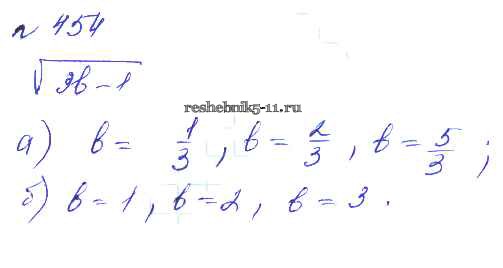 № 454
√(3b-1)
reshebnik5-11.ru
а) b = 1/3, b = 2/3, b = 5/3;
б) b = 1, b = 2, b = 3.